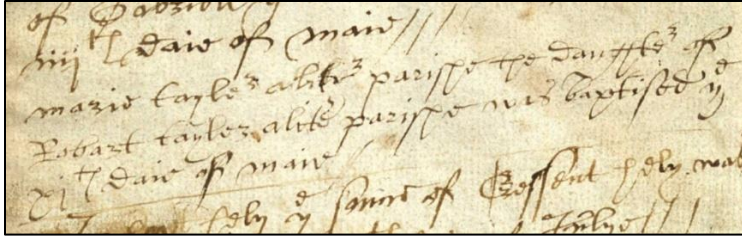 of
iiijth daie of maie
marie tayler alite parishe the daughter of
Robart tayler alite parishe was baptised ye
xjth daie of maie
hely ye sonne of hely was